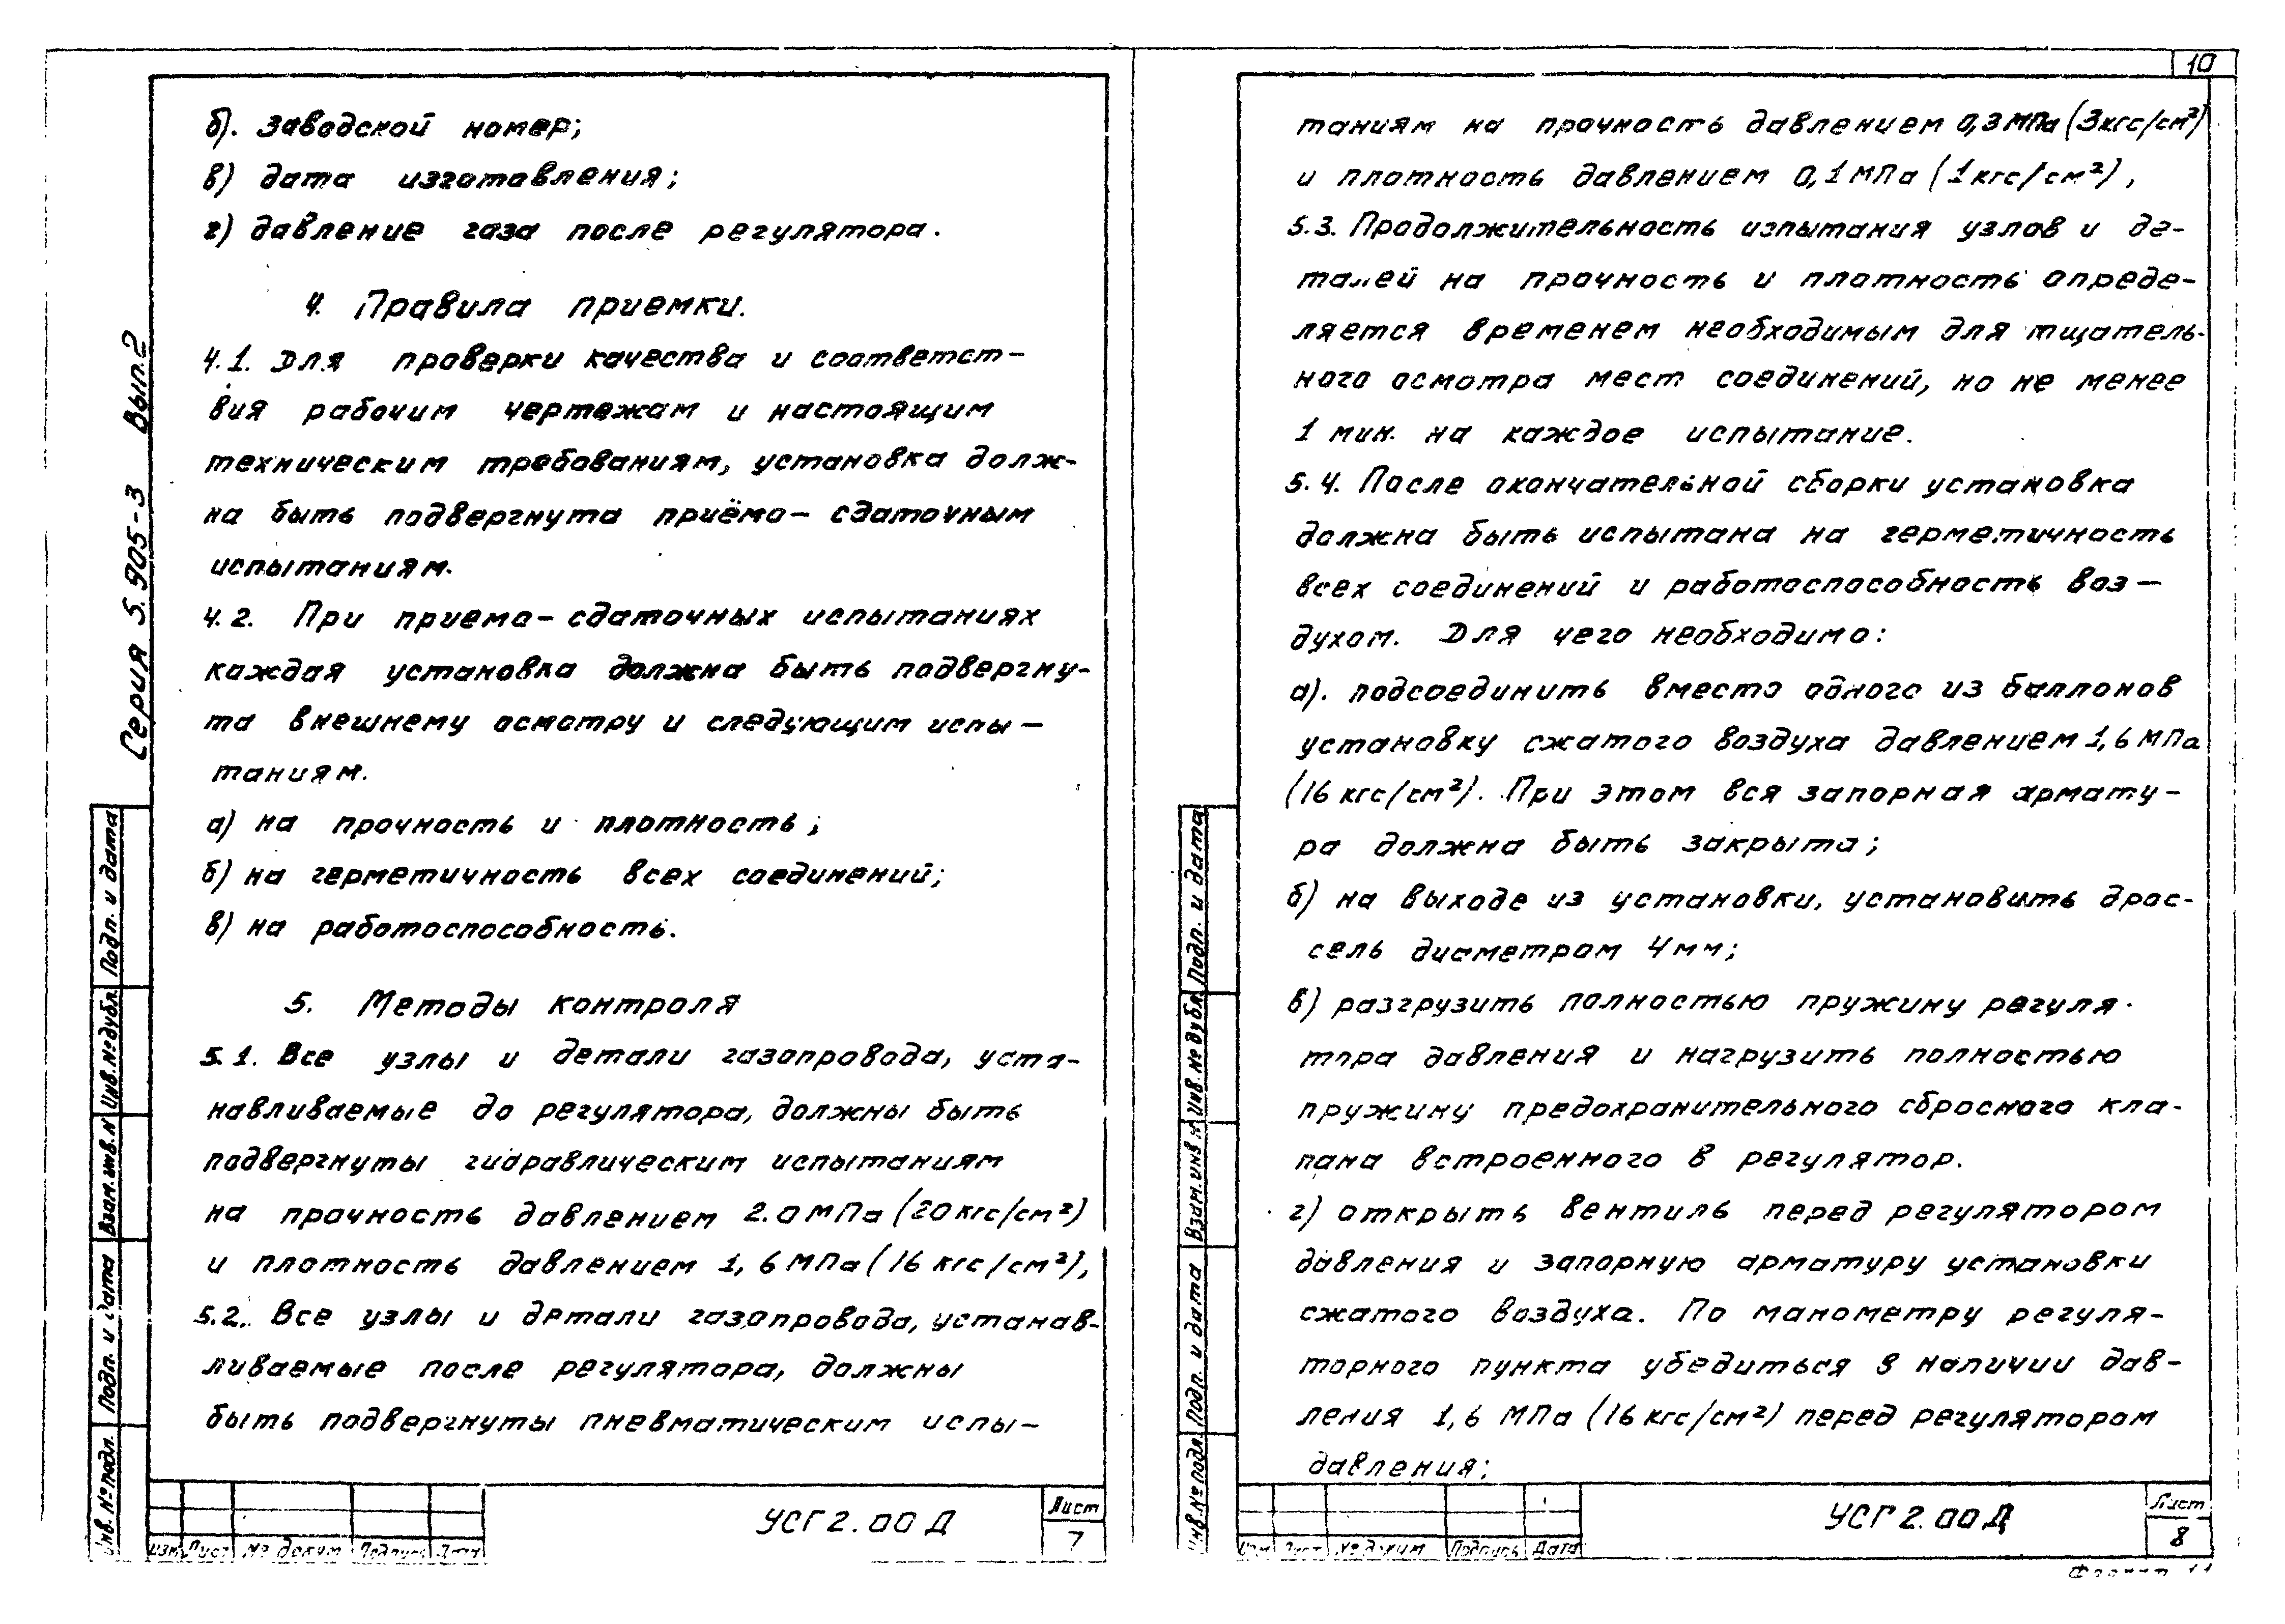 б). заводской номер;
в) дата изготовления;
г) давление газа после регулятора.
4. Правила приемки.
4.1. Для проверки качества и соответст-
вия рабочим чертежам и настоящим
техническим требованиям, установка долж-
на быть подвергнута приёмо-сдаточным
испытаниям.
4.2. При приемо-сдаточных испытаниях
каждая установка должна быть подвергну-
та внешнему осмотру и следующим испы-
таниям.
а) на прочность и плотность;
б) на герметичность всех соединений;
в) на работоспособность.
5. Методы контроля
5.1. Все узлы и детали газопровода, уста-
навливаемые до регулятора, должны быть
подвергнуты гидравлическим испытаниям
на прочность давлением 2.0 МПа (20 кгс/см²)
и плотность давлением 1,6 МПа (16 кгс/см²),
5.2. Все узлы и детали газопровода, устанав-
ливаемые после регулятора, должны
быть подвергнуты пневматическим испы-
Серия 5.905-3 Вып.2
Подп. и дата
Инв.№ дубл.
Взам.инв.№
Подп. и дата
Инв.№ подл.
Изм Лист № докум Подпись Дата
УСГ2.00 Д
Лист
7
10
таниям на прочность давлением 0,3 МПа (3 кгс/см²)
и плотность давлением 0,1 МПа (1 кгс/см²),
5.3. Продолжительность испытания узлов и де-
талей на прочность и плотность опреде-
ляется временем необходимым для тщатель-
ного осмотра мест соединений, но не менее
1 мин. на каждое испытание.
5.4. После окончательной сборки установка
должна быть испытана на герметичность
всех соединений и работоспособность воз-
духом. Для чего необходимо:
а). подсоединить вместо одного из баллонов
установку сжатого воздуха давлением 1,6 МПа
(16 кгс/см²). При этом вся запорная армату-
ра должна быть закрыта;
б) на выходе из установки, установить дрос-
сель диаметром 4 мм;
в) разгрузить полностью пружину регуля-
тора давления и нагрузить полностью
пружину предохранительного сбросного кла-
пана встроенного в регулятор.
г) открыть вентиль перед регулятором
давления и запорную арматуру установки
сжатого воздуха. По манометру регуля-
торного пункта убедиться в наличии дав-
ления 1,6 МПа (16 кгс/см²) перед регулятором
давления;
Подп. и дата
Инв.№ дубл.
Взам.инв №
Подп. и дата
Инв.№ подл.
Изм Лист № докум Подпись Дата
УСГ2.00 Д
Лист
8
Формат 11